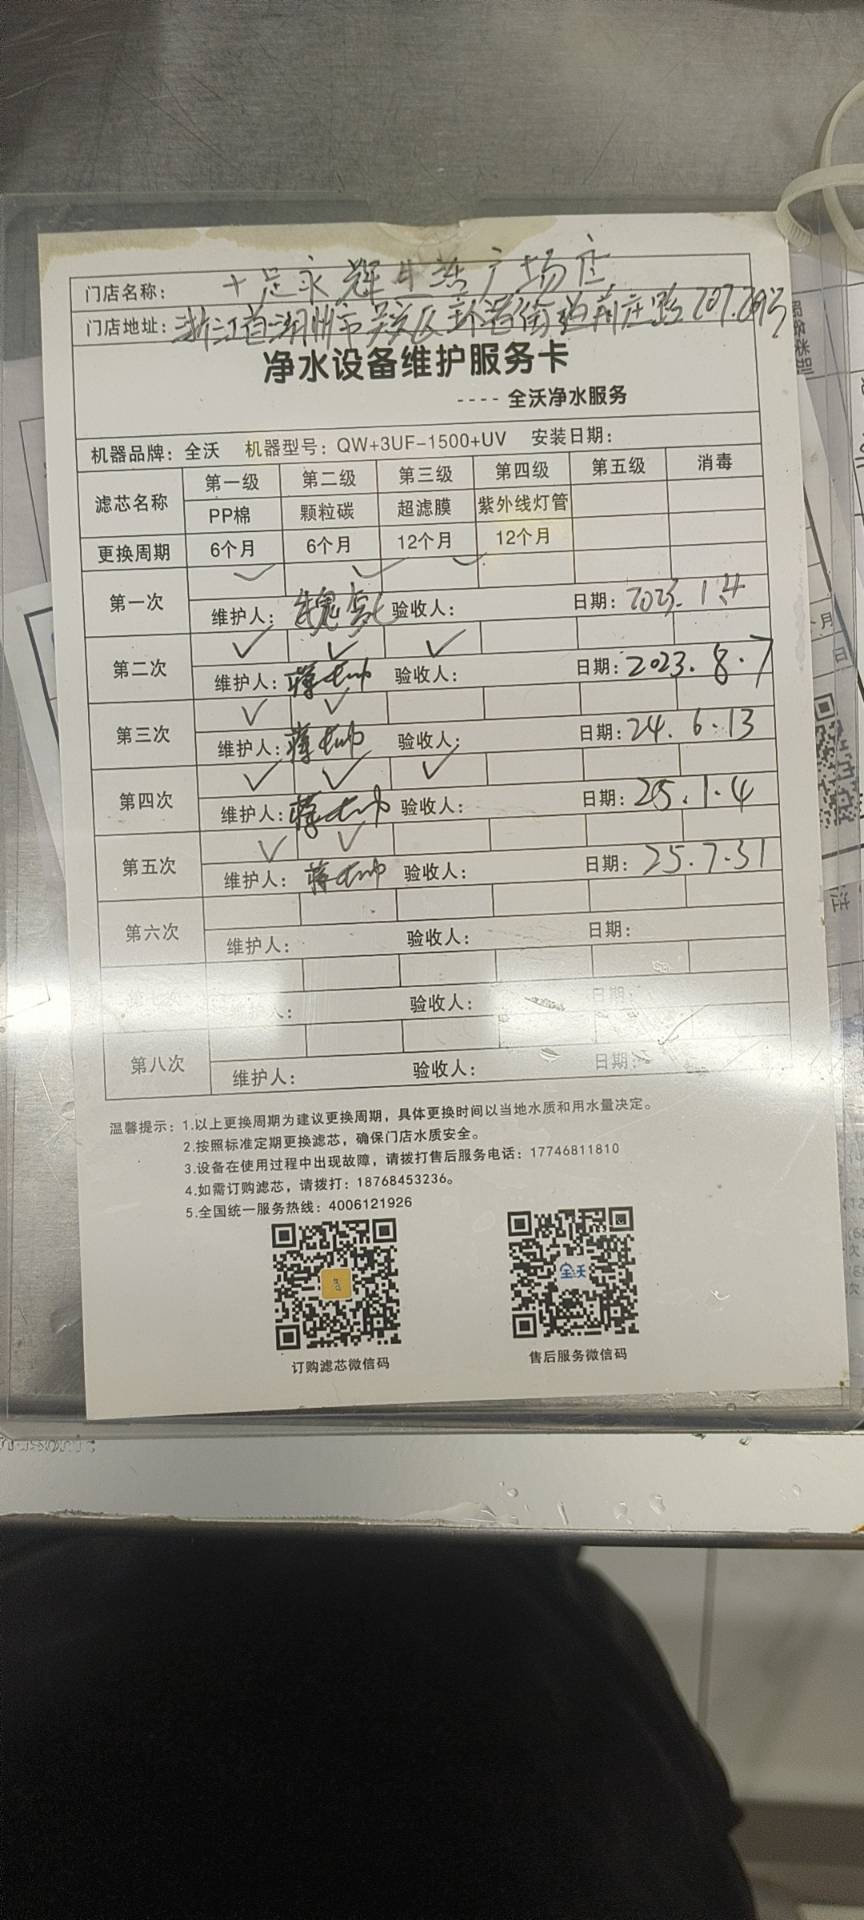 门店名称： 十足永辉生活广场店
门店地址： 浙江省湖州市吴兴区
净水设备维护服务卡
---- 全沃净水服务
机器品牌：全沃 机器型号：QW+3UF-1500+UV 安装日期：
滤芯名称 第一级 第二级 第三级 第四级 第五级 消毒
PP棉 颗粒碳 超滤膜 紫外线灯管
更换周期 6个月 6个月 12个月 12个月
第一次 ✓ ✓ ✓
维护人： 魏 验收人： 日期： 2023.1.4
第二次 ✓ ✓ ✓
维护人： 蒋 验收人： 日期：2023.8.7
第三次 ✓ ✓
维护人： 蒋 验收人： 日期：24.6.13
第四次 ✓ ✓ ✓
维护人： 蒋 验收人： 日期：25.1.4
第五次 ✓ ✓
维护人： 蒋 验收人： 日期：25.7.31
第六次
维护人： 验收人： 日期：
第七次
维护人： 验收人： 日期：
第八次
维护人： 验收人： 日期：
温馨提示：1.以上更换周期为建议更换周期，具体更换时间以当地水质和用水量决定。
2.按照标准定期更换滤芯，确保门店水质安全。
3.设备在使用过程中出现故障，请拨打售后服务电话：17746811810
4.如需订购滤芯，请拨打：18768453236。
5.全国统一服务热线：4006121926
全沃
订购滤芯微信码 售后服务微信码